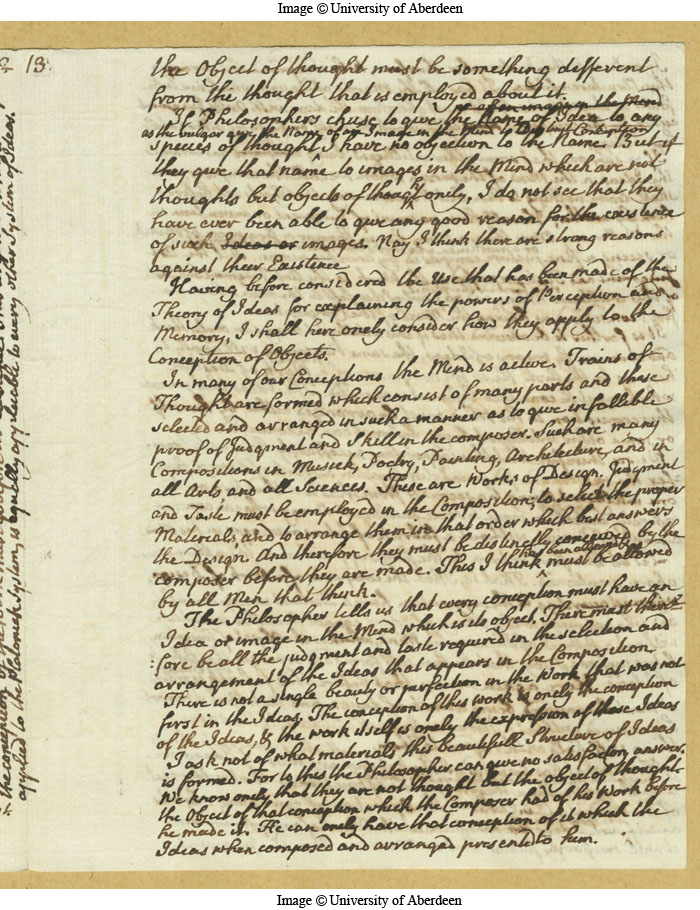 Image © University of Aberdeen
13.
the Object of thought must be something different
from the thought that is employed about it.
or an image in the Mind
If Philosophers chuse to give the Name of Idea to any
as the vulgar give the Name of an Image in the Mind to
species of thought I have no objection to the Name. But if
they give that name to images in the Mind which are not
thoughts but objects of thought onely, I do not see that they
have ever been able to give any good reason for the existence
of such Ideas or images. Nay I think there are strong reasons
against their Existence
Having before considered the Use that has been made of the
Theory of Ideas for explaining the powers of Perception and
Memory, I shall here onely consider how they apply to the
Conception of Objects.
In many of our Conceptions the Mind is active. Trains of
Thought are formed which consist of many parts and these
selected and arranged in such a manner as to give infallible
proof of Judgment and Skill in the composer. Such are many
Compositions in Musick, Poetry, Painting, Architecture, and in
all Arts and all Sciences. These are Works of Design. Judgment
and Taste must be employed in the Composition, to select the proper
Materials and to arrange them in that order which best answers
the Design. And therefore they must be distinctly conceived by the
has been allowed &
composer before they are made. This I think must be allowed
by all Men that think.
The Philosopher tells us that every conception must have an
Idea or image in the Mind which is its object. There must there
:fore be all the judgment and taste required in the selection and
arrangement of the Ideas that appears in the Composition
There is not a single beauty or perfection in the Work that was not
first in the Ideas. The conception of this work is onely the conception
of the Ideas, & the work itself is onely the expression of these Ideas
I ask not of what materials this beautifull Structure of Ideas
is formed. For to this the Philosopher can give no satisfactory answer.
We know onely that they are not thought but the object of thought
the Object of that conception which the Composer had of his Work before
he made it. He can onely have that conception of it which the
Ideas when composed and arranged presented to him.
applied to the Platonick System, is equally applicable to every other System of Ideas.
Image © University of Aberdeen